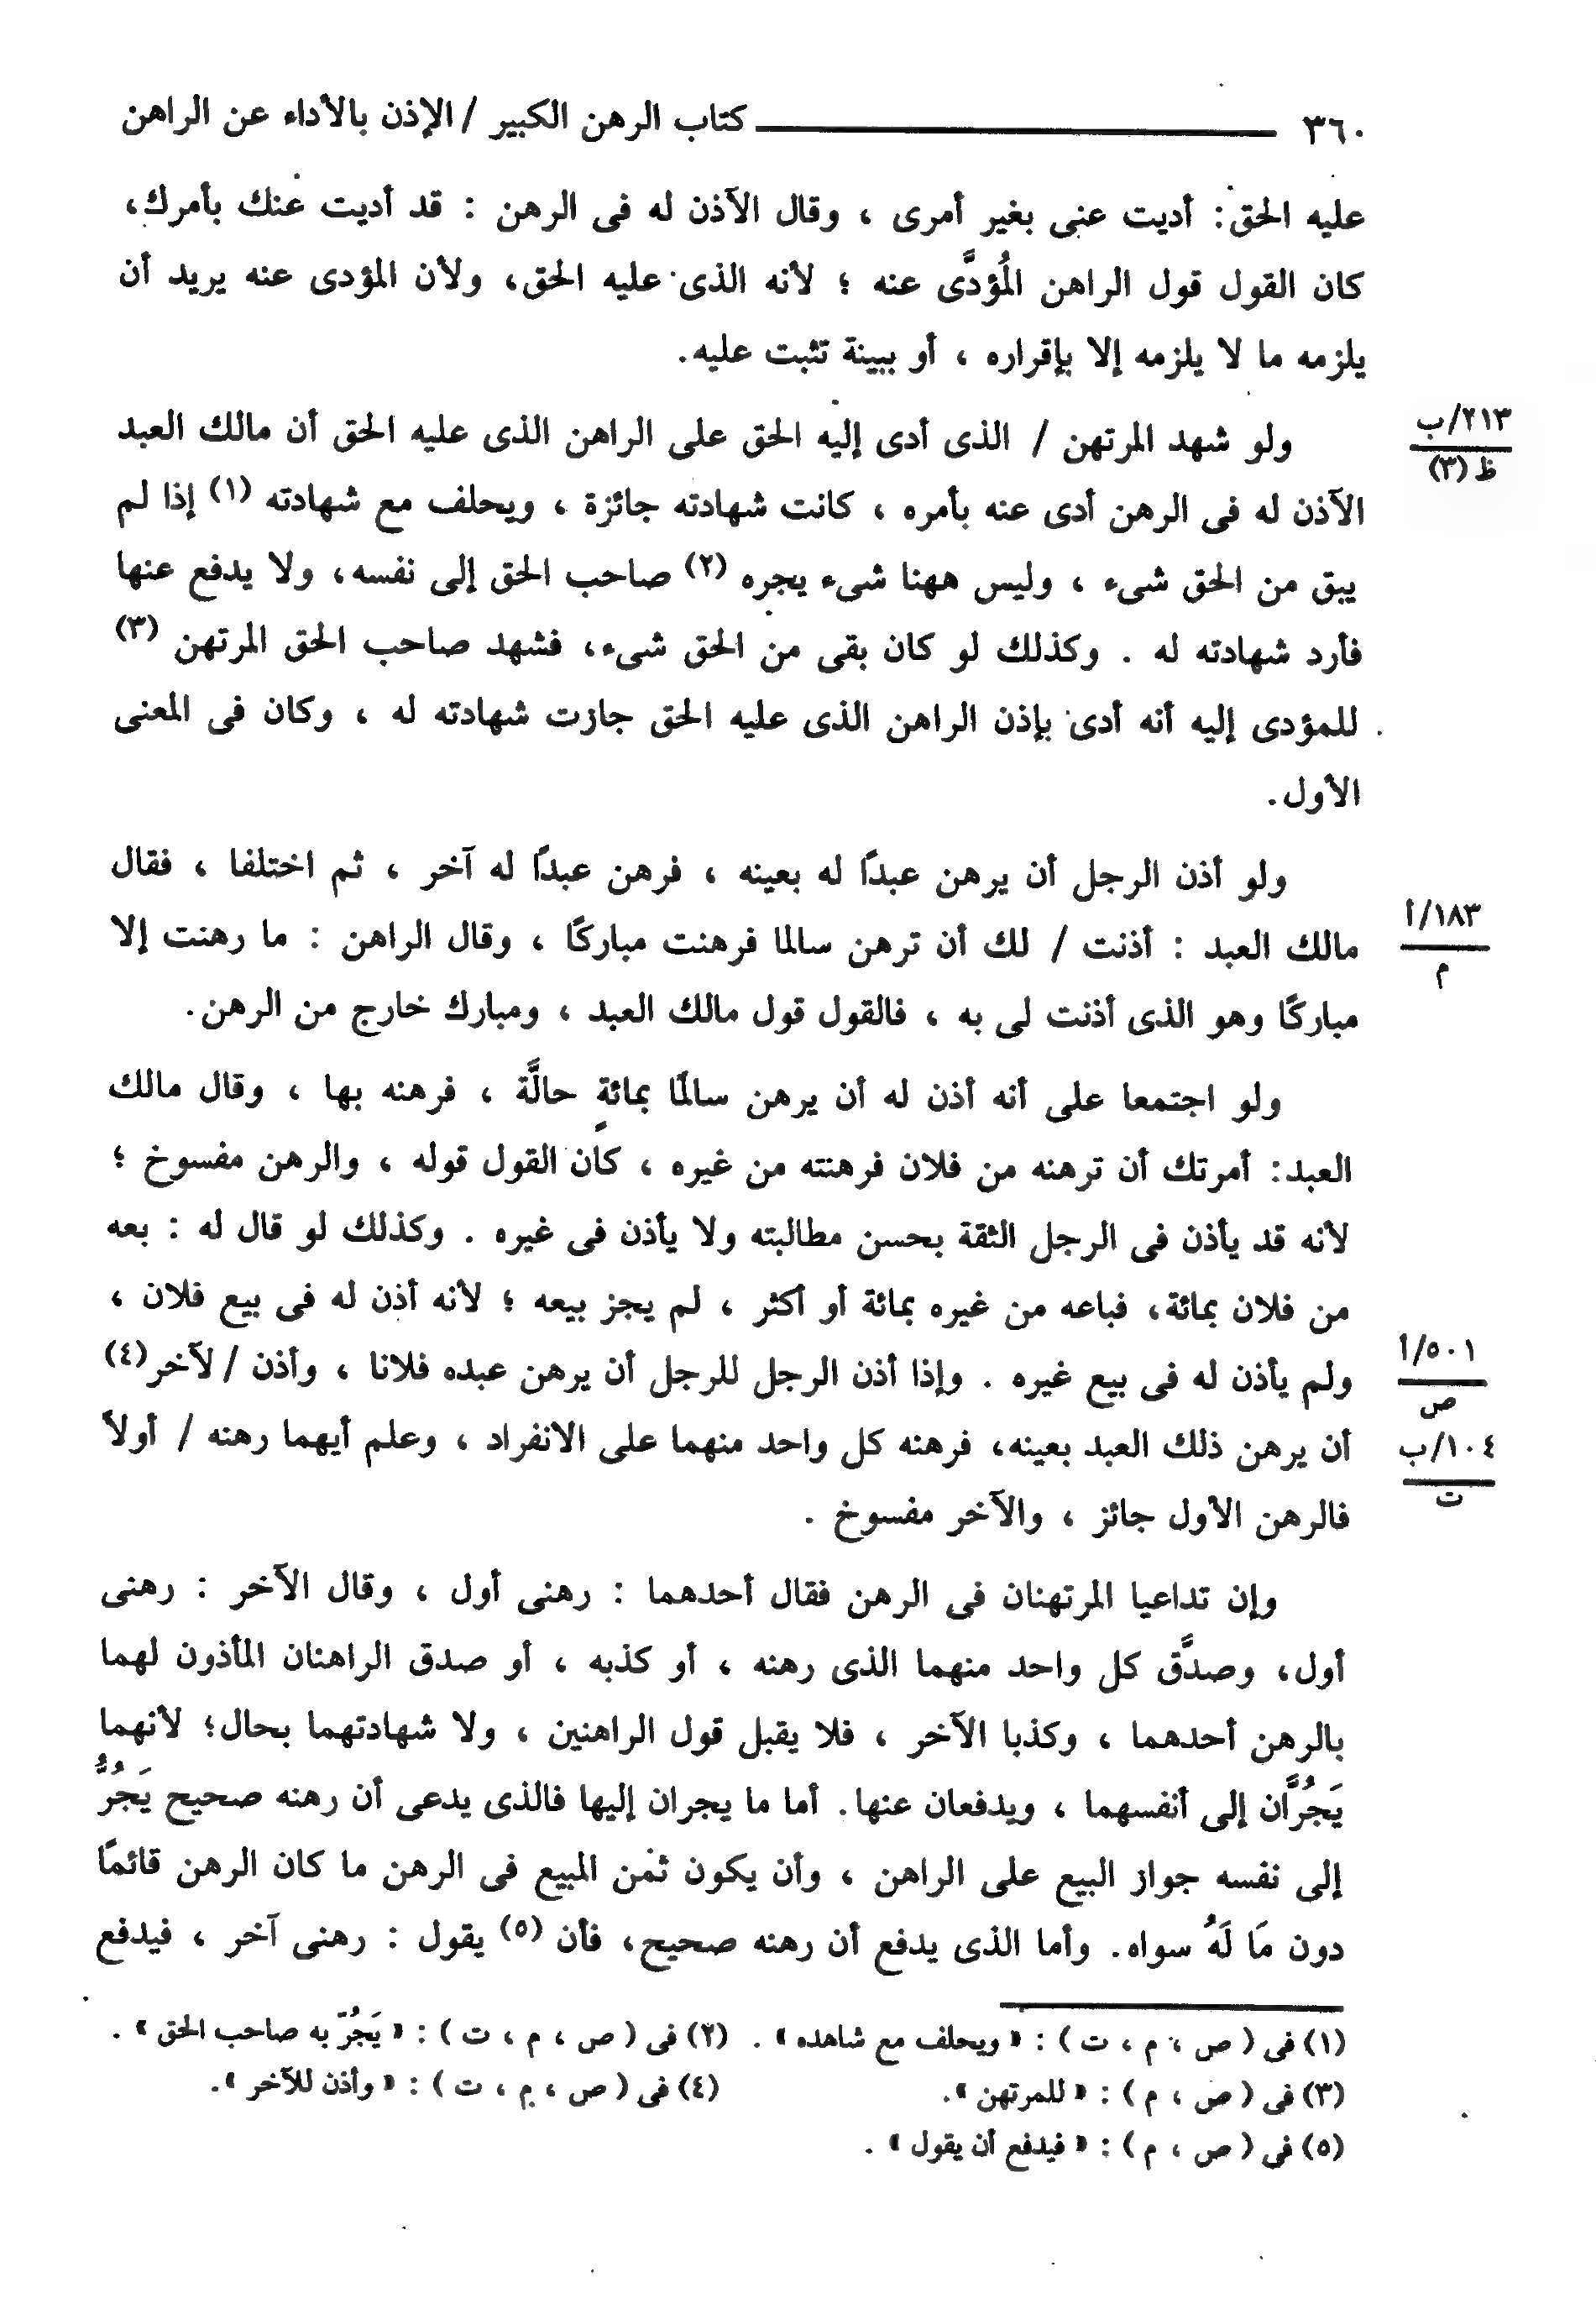 ٣٦٠ كتاب الرهن الكبير / الإذن بالأداء عن الراهن
عليه الحق: أديت عنى بغير أمرى ، وقال الآذن له فى الرهن : قد أديت عنك بأمرك،
كان القول قول الراهن المُؤدَّى عنه ؛ لأنه الذى عليه الحق، ولأن المؤدى عنه يريد أن
يلزمه ما لا يلزمه إلا بإقراره ، أو ببينة تثبت عليه.
ولو شهد المرتهن / الذى أدى إليه الحق على الراهن الذى عليه الحق أن مالك العبد
٢١٣/ب
ظ (٣)
الآذن له فى الرهن أدى عنه بأمره ، كانت شهادته جائزة ، ويحلف مع شهادته (١) إذا لم
يبق من الحق شىء ، وليس ههنا شىء يجره (٢) صاحب الحق إلى نفسه، ولا يدفع عنها
فأرد شهادته له . وكذلك لو كان بقى من الحق شىء، فشهد صاحب الحق المرتهن (٣)
للمؤدى إليه أنه أدى بإذن الراهن الذى عليه الحق جازت شهادته له ، وكان فى المعنى
الأول.
ولو أذن الرجل أن يرهن عبدًا له بعينه ، فرهن عبدًا له آخر ، ثم اختلفا ، فقال
مالك العبد : أذنت / لك أن ترهن سالما فرهنت مباركًا ، وقال الراهن : ما رهنت إلا
١٨٣/أ
م
مباركًا وهو الذى أذنت لى به ، فالقول قول مالك العبد ، ومبارك خارج من الرهن.
ولو اجتمعا على أنه أذن له أن يرهن سالمًا بمائةٍ حالَّة ، فرهنه بها ، وقال مالك
العبد: أمرتك أن ترهنه من فلان فرهنته من غيره ، كان القول قوله ، والرهن مفسوخ ؛
لأنه قد يأذن فى الرجل الثقة بحسن مطالبته ولا يأذن فى غيره . وكذلك لو قال له : بعه
من فلان بمائة، فباعه من غيره بمائة أو أكثر ، لم يجز بيعه ؛ لأنه أذن له فى بيع فلان ،
ولم يأذن له فى بيع غيره . وإذا أذن الرجل للرجل أن يرهن عبده فلانا ، وأذن / لآخر(٤)
٥٠١/أ
ص
أن يرهن ذلك العبد بعينه، فرهنه كل واحد منهما على الانفراد ، وعلم أيهما رهنه / أولاً
١٠٤/ب
ت
فالرهن الأول جائز ، والآخر مفسوخ .
وإن تداعيا المرتهنان فى الرهن فقال أحدهما : رهنى أول ، وقال الآخر : رهنى
أول، وصدَّق كل واحد منهما الذى رهنه ، أو كذبه ، أو صدق الراهنان المأذون لهما
بالرهن أحدهما ، وكذبا الآخر ، فلا يقبل قول الراهنين ، ولا شهادتهما بحال؛ لأنهما
يَجُرَّان إلى أنفسهما ، ويدفعان عنها. أما ما يجران إليها فالذى يدعى أن رهنه صحيح يَجُرُّ
إلى نفسه جواز البيع على الراهن ، وأن يكون ثمن المبيع فى الرهن ما كان الرهن قائمًا
دون مَا لَهُ سواه. وأما الذى يدفع أن رهنه صحيح، فأن (٥) يقول : رهنى آخر ، فيدفع
(١) فى ( ص ، م ، ت ) : « ويحلف مع شاهده » . (٢) فى ( ص ، م ، ت ) : « يَجُرّ به صاحب الحق » .
(٣) فى ( ص ، م ) : « للمرتهن ». (٤) فى ( ص ، م ، ت ) : « وأذن للآخر ».
(٥) فى ( ص ، م ) : « فيدفع أن يقول » .